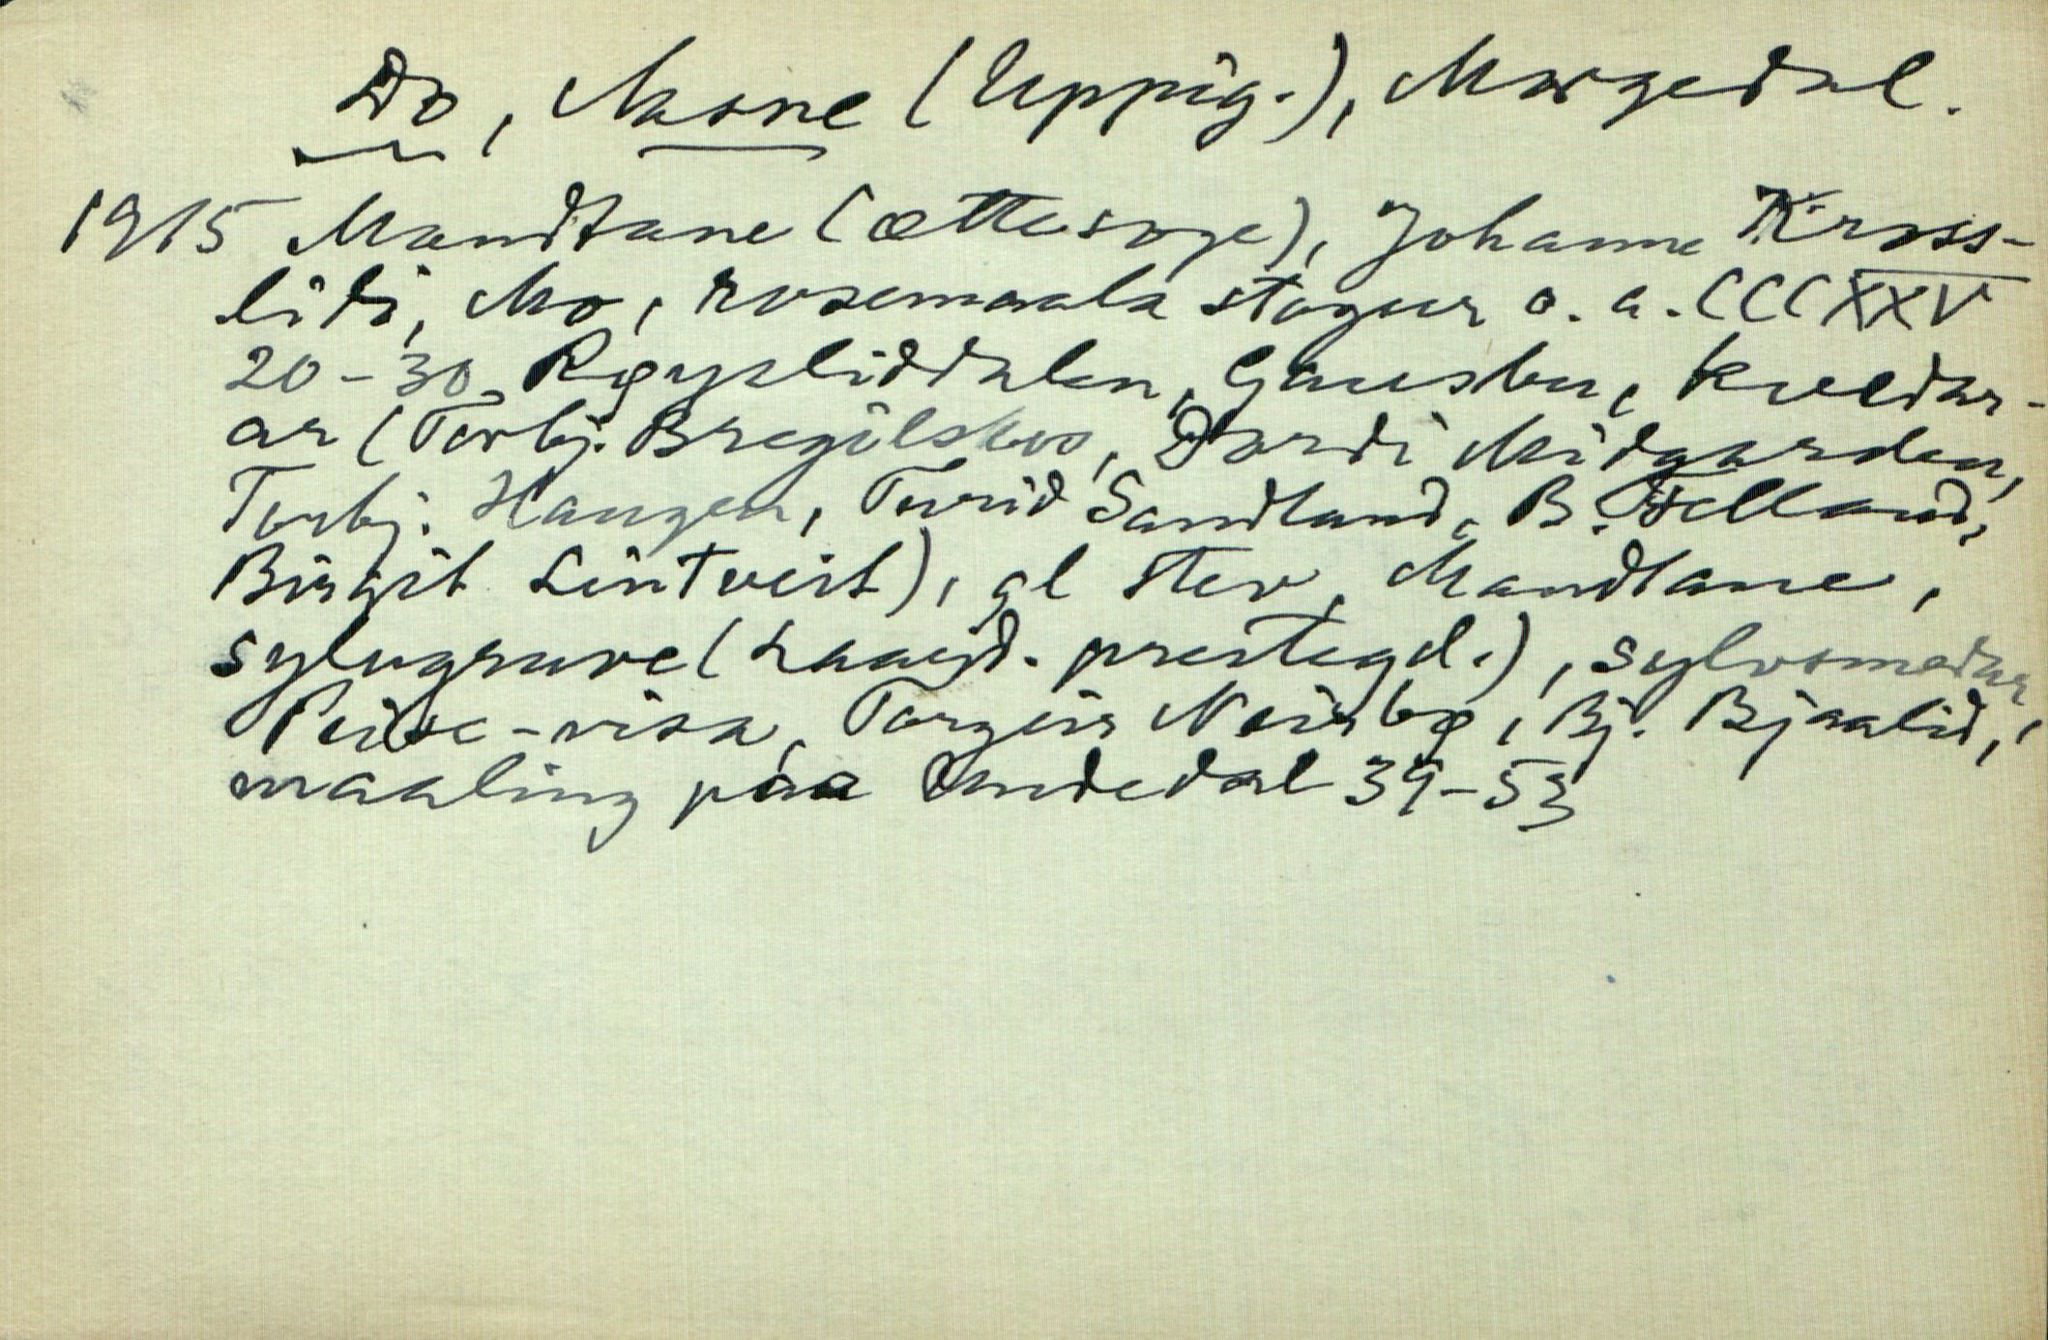 Do, Aasne (Uppig.), Morgedal.
1915 Mandtane (ættesoge), Johanne Kross-
lidi, Mo, rosemaala stogur o. a. CCCXXV
20-30, Røysliddalen, Gausbu, kveдar-
ar (Torbj. Bregilsbu, Dordi Midgarden,
Torbj. Haugen, Turid Sandland, B. Felland,
Birgit Lintveit), gl stev, Mandtane,
sylvgruve (Laard. prestegd.), sylvsmedar,
Peise-visa, Torgeir Neirbø, Bj. Bjaalid,
maaling paa Candedal 39-53